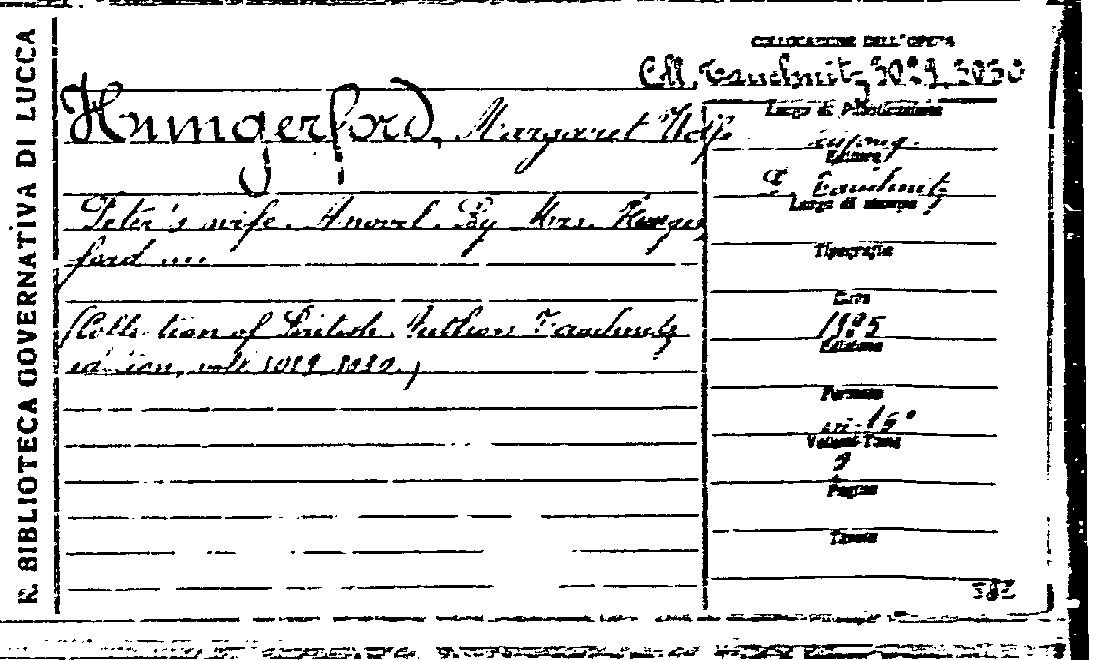 R. BIBLIOTECA GOVERNATIVA DI LUCCA
COLLOCAZIONE DELL'OPERA
Coll. Tauchnitz, 3029, 3030
Hungerford, Margaret Wolfe
Peter's wife. A novel. By Mrs. Hunger
ford ...
(Collection of British Authors Tauchnitz
edition, voll. 3029, 3030.)
Luogo di Pubblicazione
Editore
Tauchnitz
Luogo di stampa
Tipografia
Data
1895
Edizione
Formato
in-16°
Volumi-Tomi
2
Pagine
Tavole